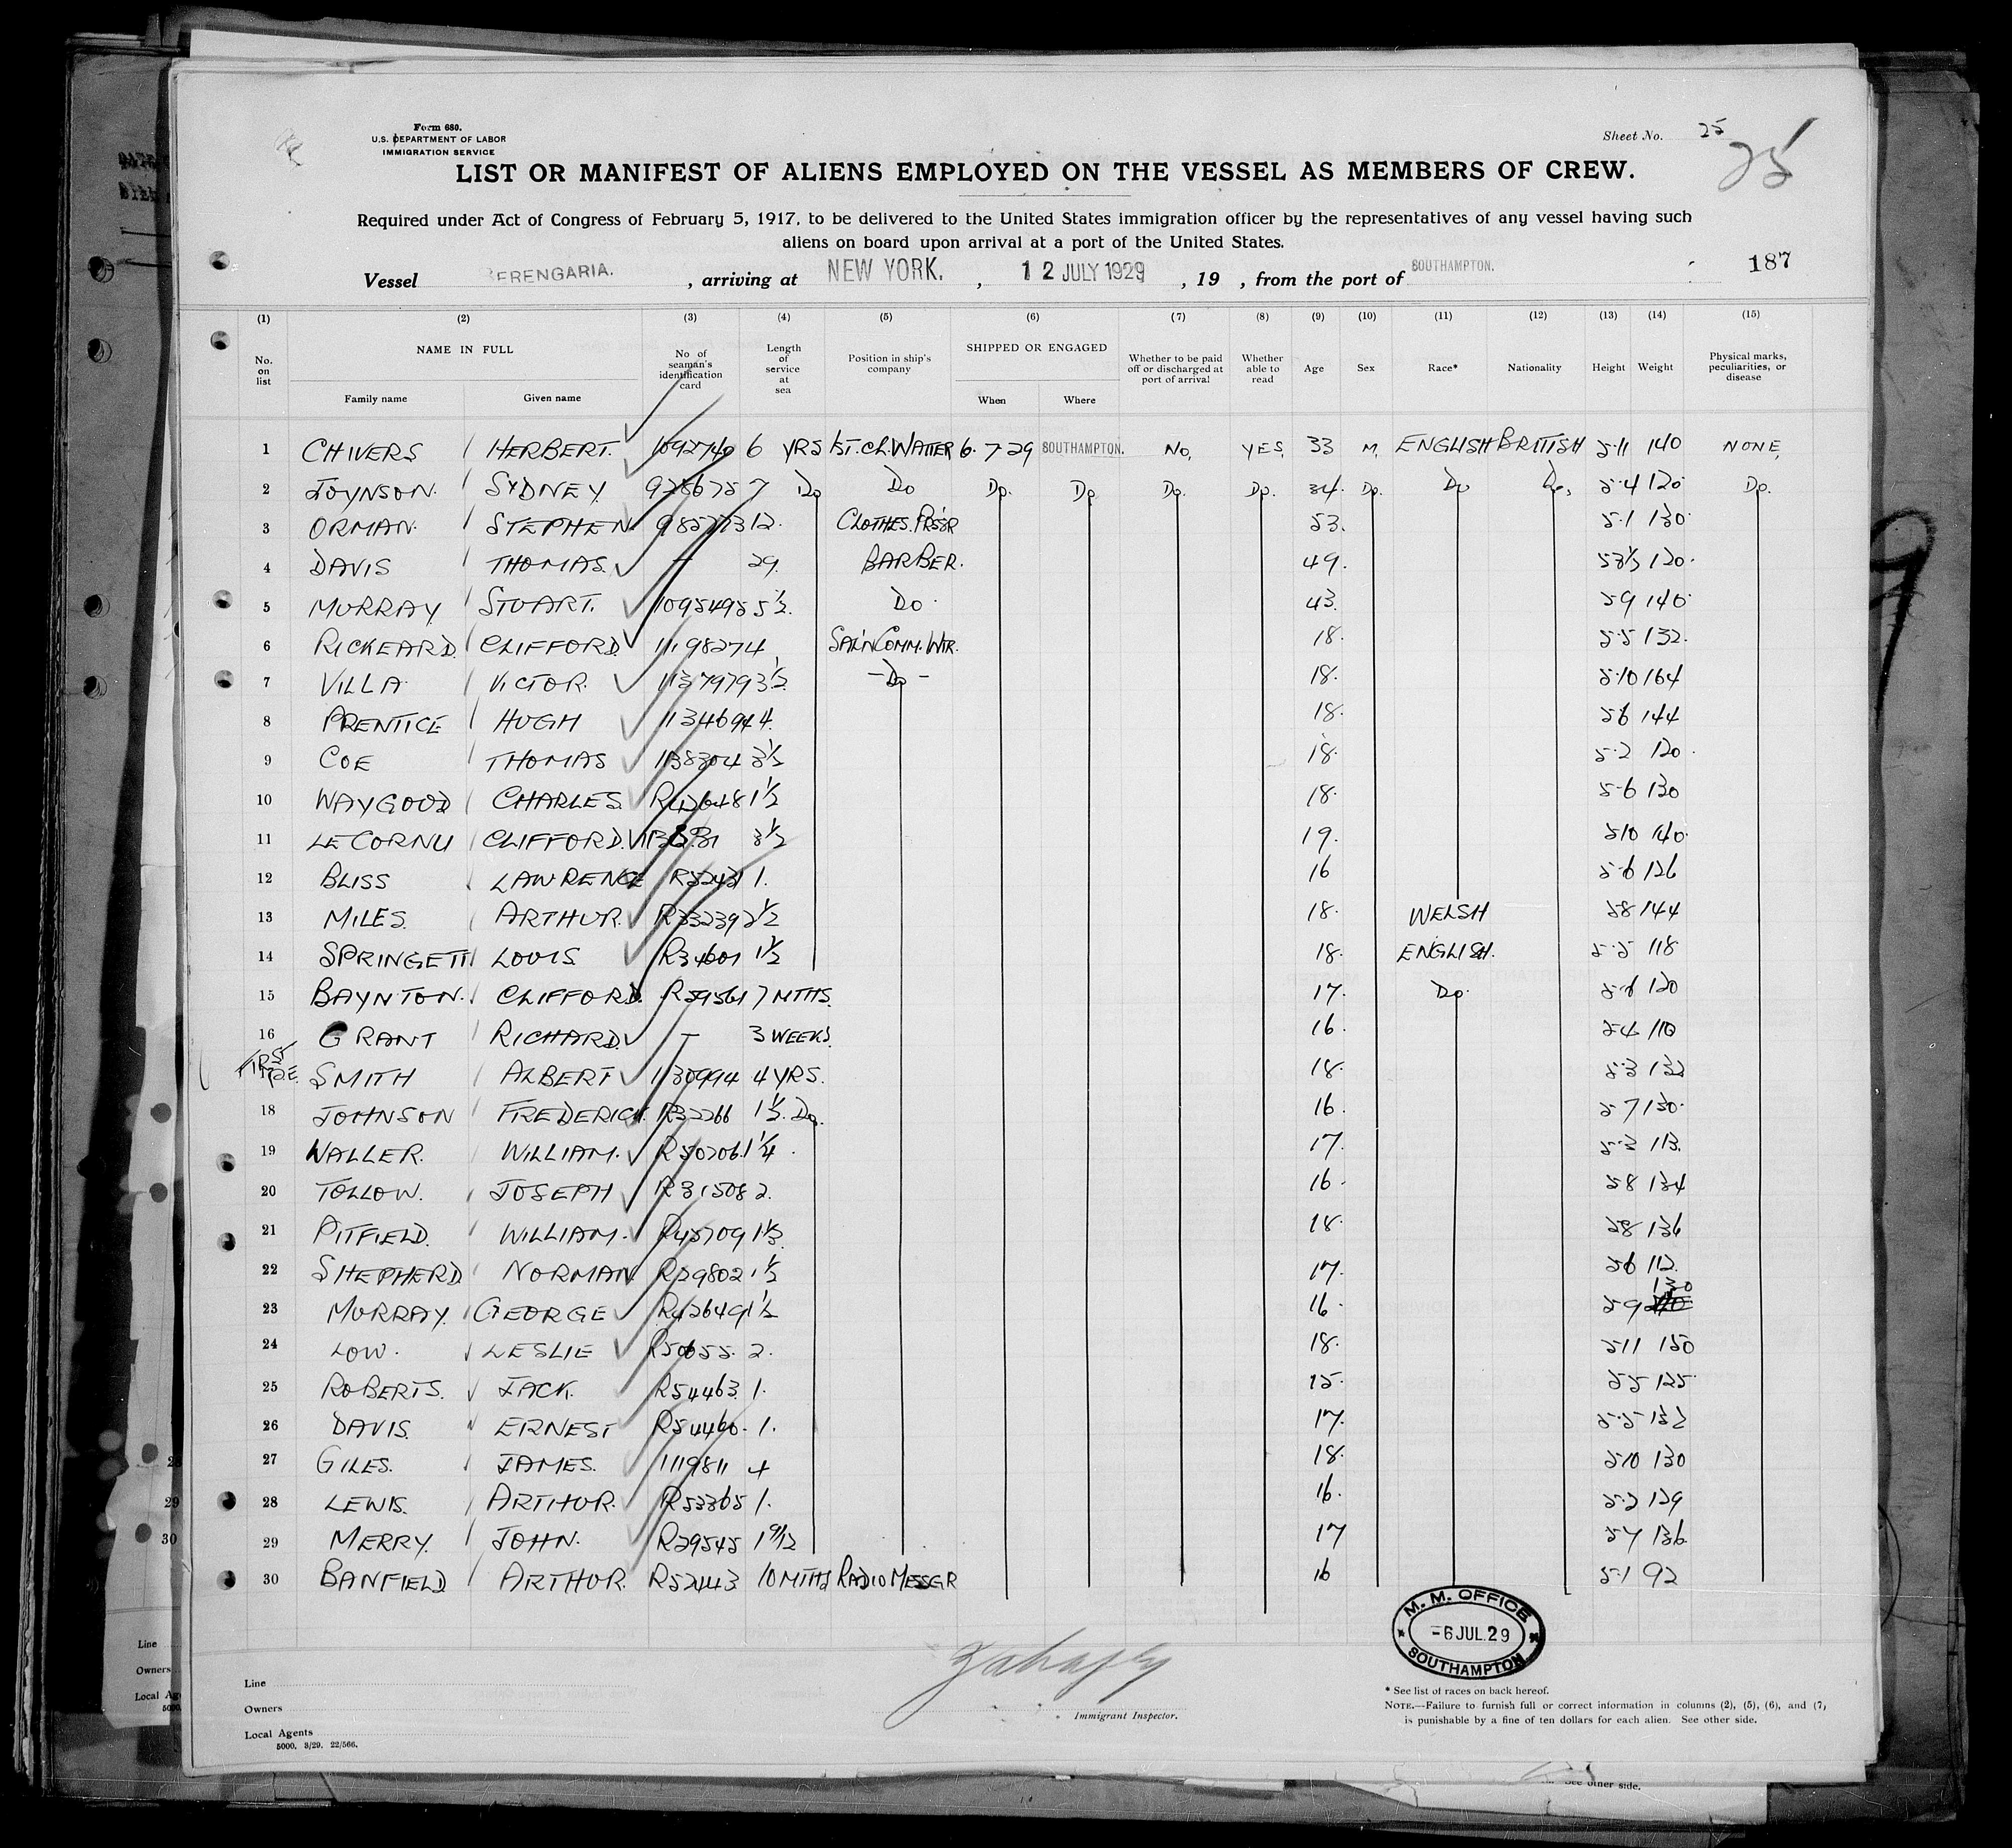 Form 680.
U.S. DEPARTMENT OF LABOR
IMMIGRATION SERVICE
Sheet No. 25
25
LIST OR MANIFEST OF ALIENS EMPLOYED ON THE VESSEL AS MEMBERS OF CREW.
Required under Act of Congress of February 5, 1917, to be delivered to the United States immigration officer by the representatives of any vessel having such
aliens on board upon arrival at a port of the United States.
Vessel BERENGARIA. , arriving at NEW YORK. , 12 JULY 1929 , 19 , from the port of SOUTHAMPTON. 187
(1) (2) (3) (4) (5) (6) (7) (8) (9) (10) (11) (12) (13) (14) (15)
No. on list NAME IN FULL Family name Given name No of seaman's identification card Length of service at sea Position in ship's company SHIPPED OR ENGAGED When Where Whether to be paid off or discharged at port of arrival Whether able to read Age Sex Race* Nationality Height Weight Physical marks, peculiarities, or disease
1 CHIVERS HERBERT. 1092740 6 YRS 1ST.CL.WAITER 6.7-29 SOUTHAMPTON. NO. YES. 33 M. ENGLISH BRITISH 5-11 140 NONE.
2 JOYNSON. SYDNEY. 7 Do Do Do. Do. Do. Do. 34. Do. Do Do. 5-4 120 Do.
3 ORMAN. STEPHEN 12. CLOTHES.PRS'R 53. 5-1 130.
4 DAVIS THOMAS. — 29. BARBER. 49. 120.
5 MURRAY STUART. 1095495 5½. Do. 43. 59 140.
6 RICKEARD. CLIFFORD. 1119827 4. SAL'N COMM. WTR. 18. 5-5 132.
7 VILLA. VICTOR. 1137979 3½. -Do- 18. 5-10 164
8 PRENTICE HUGH 1134694 4. 18. 56 144
9 COE THOMAS 1138304 3½ 18. 5-2 120.
10 WAYGOOD CHARLES. R42648 1½ 18. 5-6 130
11 LE CORNU CLIFFORD. 3½ 19. 510 140.
12 BLISS LAWRENCE R52431 1. 16 5-6 126
13 MILES. ARTHUR. R33239 2½ 18. WELSH 58 144
14 SPRINGETT LOUIS R34601 1½ 18. ENGLISH. 5-5 118
15 BAYNTON. CLIFFORD. R59561 7 MTHS. 17. Do. 5-6 120
16 GRANT RICHARD. — 3 WEEKS. 16. 54 110
SMITH ALBERT 1130994 4 YRS. 18. 5-3 132
18 JOHNSON FREDERICK. R32266 1½. Do. 16. 57 130.
19 WALLER. WILLIAM. R50706 1¼. 17. 5-3 113.
20 TOLLOW. JOSEPH R31508 2. 16. 58 134
21 PITFIELD. WILLIAM. R45709 1½ 18. 58 136
22 SHEPHERD NORMAN R29802 1½ 17. 56 112.
23 MURRAY. GEORGE R42649 1½ 16. 59 130
24 LOW. LESLIE R50655. 2. 18. 511 150
25 ROBERTS. JACK. R54463. 1. 15. 55 125.
26 DAVIS. ERNEST R54460. 1. 17. 5-5 132
27 GILES. JAMES. 1119811 4 18. 510 130
28 LEWIS. ARTHUR. R53365 1. 16. 5-2 129
29 MERRY. JOHN. R29545 1 9/12 17 57 136.
30 BANFIELD ARTHUR. R52443 10 MTHS RADIO MESSGR 16 5-1 92
M. M. OFFICE
-6 JUL.29
SOUTHAMPTON
Line
Owners
Local Agents
5000. 3/29. 22/566.
Immigrant Inspector.
* See list of races on back hereof.
NOTE.—Failure to furnish full or correct information in columns (2), (5), (6), and (7,
is punishable by a fine of ten dollars for each alien. See other side.
28
29
30
Line
Owners
Local Ag
5000.
See other side.